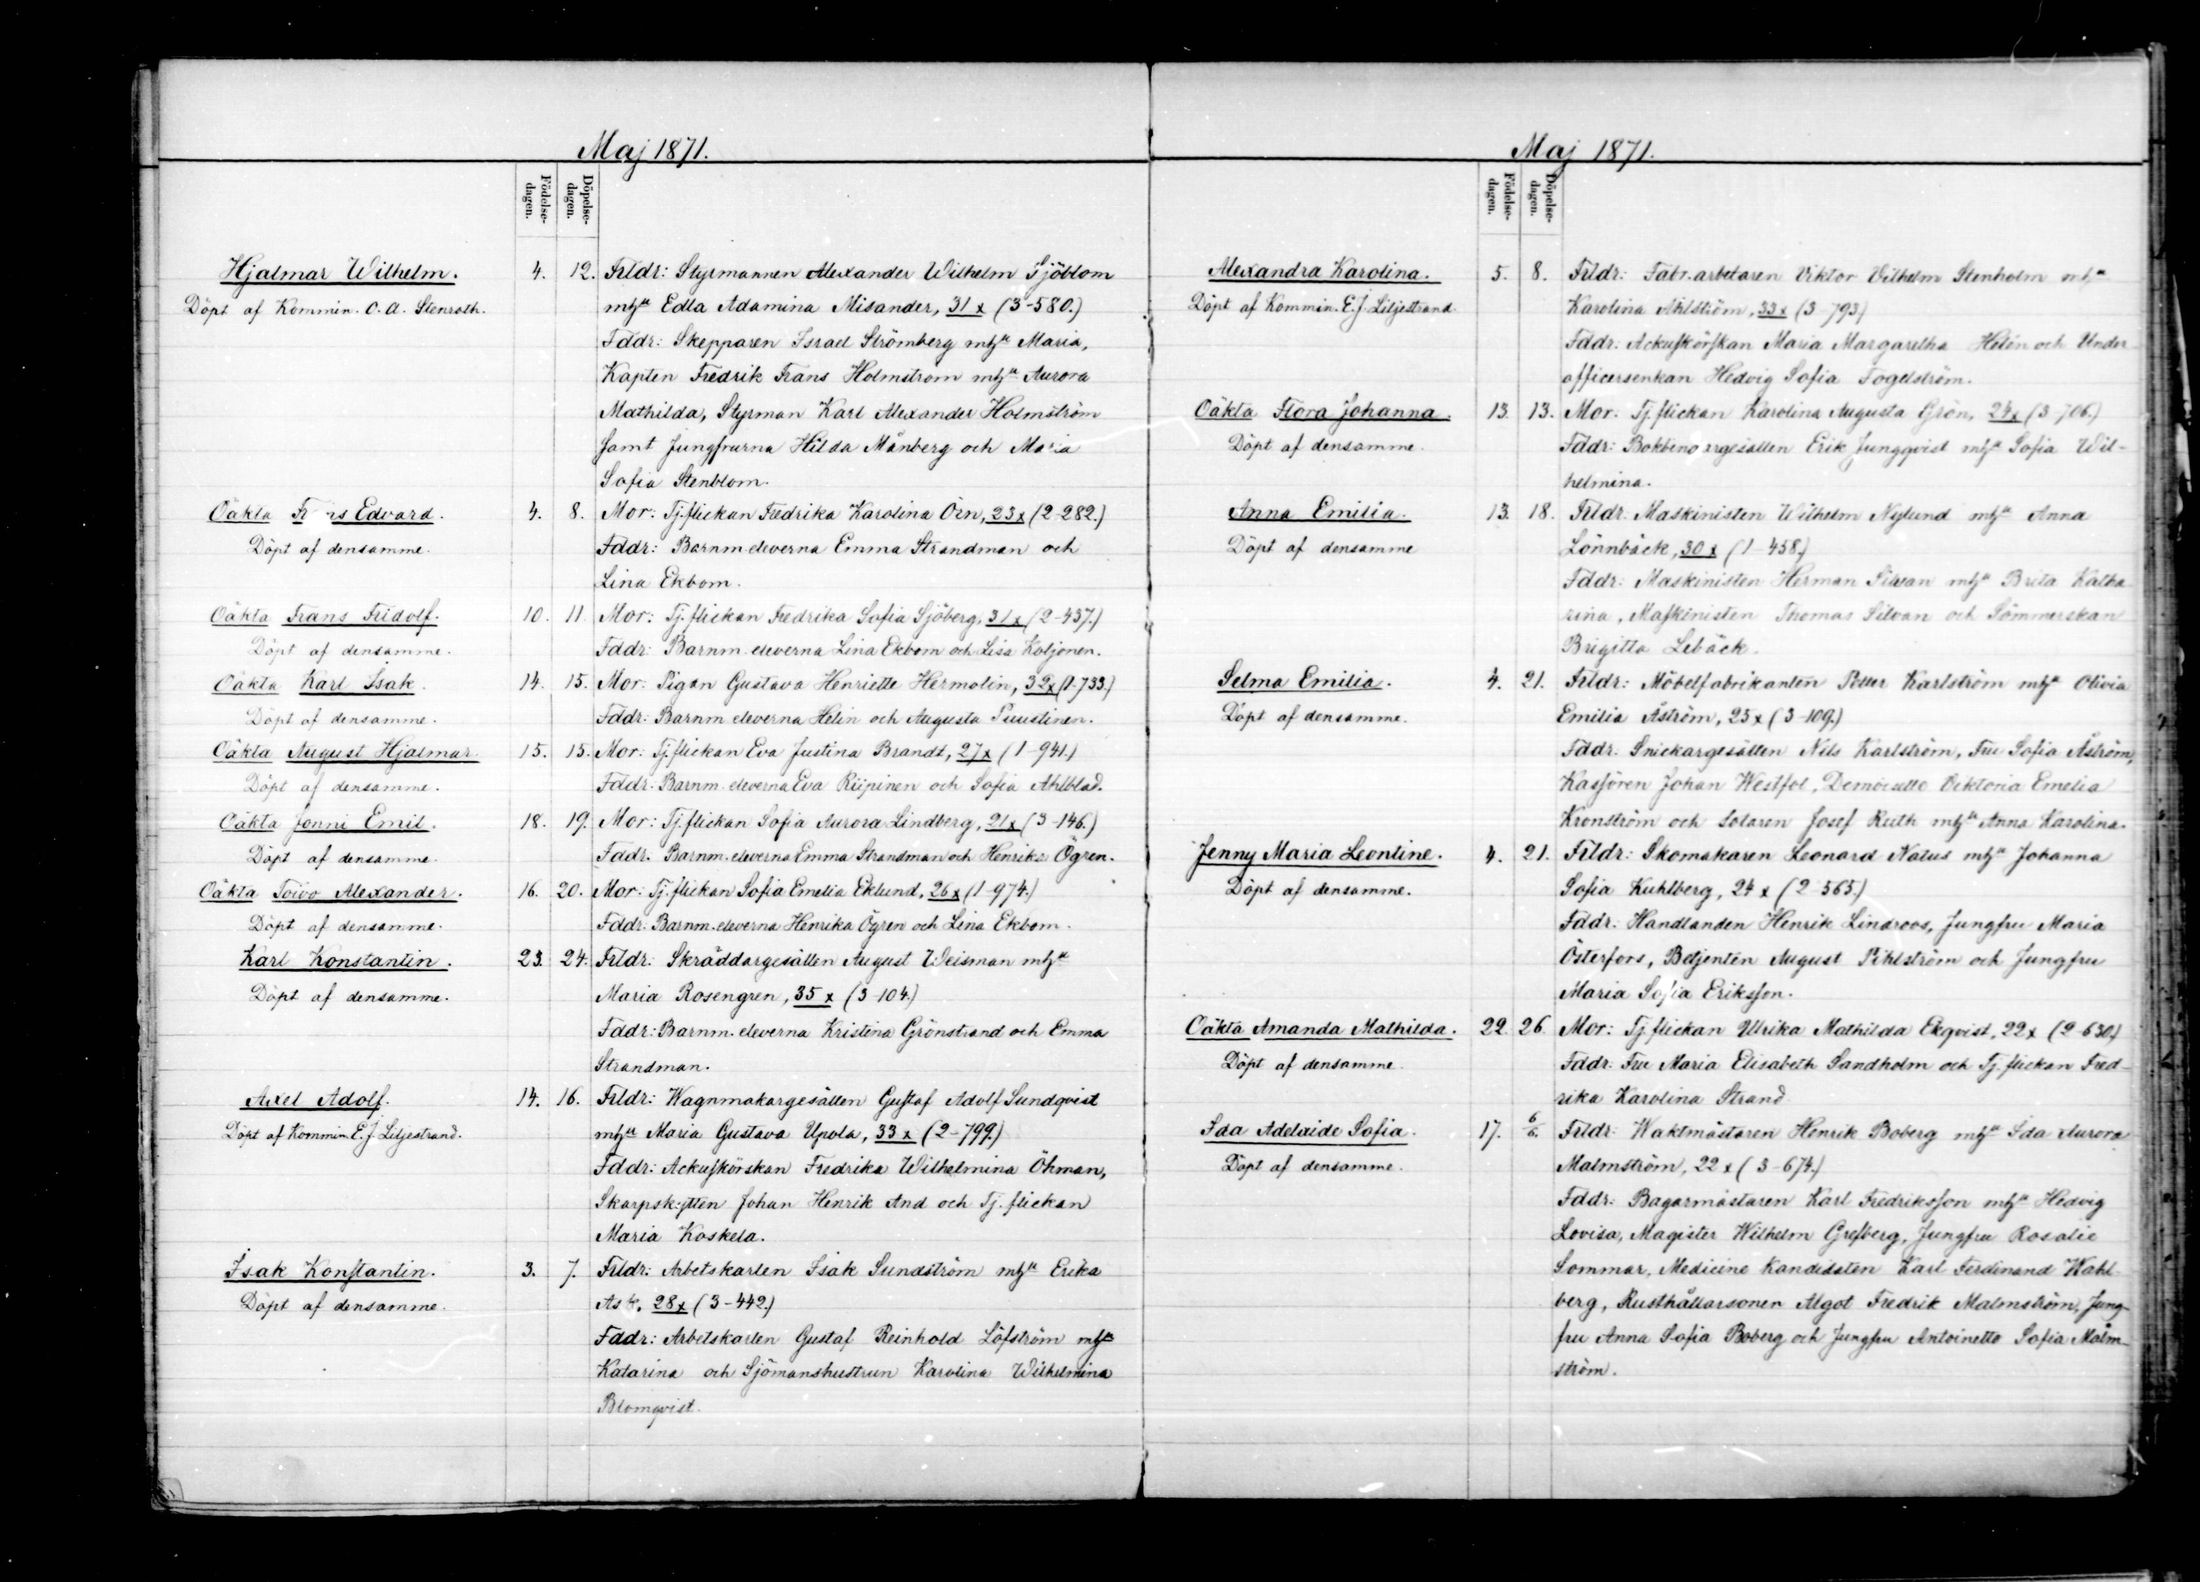 Maj 1871.
Födelse-dagen.
Döpelse-dagen.
Hjalmar Wilhelm. 4. 12. Frldr: Styrmannen Alexander Wilhelm Sjöblom
Döpt af Kommin. O. A. Stenroth. m. h. Edla Adamina Misander, 31 x (3-580.)
Fddr: Skepparen Israel Strömberg m. h. Maria,
Kapten Fredrik Frans Holmström m. h. Aurora
Mathilda, Styrman Karl Alexander Holmström
samt Jungfrurna Hilda Månberg och Maria
Sofia Stenblom.
Oäkta Frans Edvard. 4. 8. Mor: Tj.flickan Fredrika Karolina Örn, 23 x (2-282.)
Döpt af densamme. Fddr: Barnm.eleverna Emma Strandman och
Lina Ekbom.
Oäkta Frans Fridolf. 10. 11. Mor: Tj.flickan Fredrika Sofia Sjöberg, 31 x (2-437.)
Döpt af densamme. Fddr: Barnm.eleverna Lina Ekbom och Lisa Koljonen.
Oäkta Karl Isak. 14. 15. Mor: Pigan Gustava Henriette Hermolin, 32 x (1-733.)
Döpt af densamme. Fddr: Barnm.eleverna Helin och Augusta Puustinen.
Oäkta August Hjalmar. 15. 15. Mor: Tj.flickan Eva Justina Brandt, 27 x (1-941.)
Döpt af densamme. Fddr: Barnm.eleverna Eva Riipinen och Sofia Ahlblad.
Oäkta Jonni Emil. 18. 19. Mor: Tj.flickan Sofia Aurora Lindberg, 21 x (3-146.)
Döpt af densamme. Fddr. Barnm.eleverna Emma Strandman och Henrika Ögren.
Oäkta Toivo Alexander. 16. 20. Mor: Tj.flickan Sofia Emelia Eklund, 26 x (1-974.)
Döpt af densamme. Fddr: Barnm.eleverna Henrika Ögren och Lina Ekbom.
Karl Konstantin. 23. 24. Frldr. Skräddargesällen August Weisman m. h.
Döpt af densamme. Maria Rosengren, 35 x (3-104.)
Fddr: Barnm.eleverna Kristina Grönstrand och Emma
Strandman.
Axel Adolf. 14. 16. Frldr: Wagnmakargesällen Gustaf Adolf Sundqvist
Döpt af Kommin. E. J. Liljestrand. m. h. Maria Gustava Upola, 33 x (2-799.)
Fddr: Ackuschörskan Fredrika Wilhelmina Öhman,
Skarpskytten Johan Henrik And och Tj.flickan
Maria Koskela.
Isak Konstantin. 3. 7. Frldr: Arbetskarlen Isak Sundström m. h. Erika
Döpt af densamme. Ask, 28 x (3-442.)
Fddr: Arbetskarlen Gustaf Reinhold Löfström m. h.
Katarina och Sjömanshustrun Karolina Wilhelmina
Blomqvist.
Maj 1871.
Födelse-dagen.
Döpelse-dagen.
Alexandra Karolina. 5. 8. Frldr: Fabr.arbetaren Viktor Vilhelm Stenholm m. h.
Döpt af Kommin. E. J. Liljestrand. Karolina Ahlström, 33 x (3-793)
Fddr: Ackuschörskan Maria Margaretha Helén och Under
officersenkan Hedvig Sofia Fogelström.
Oäkta Flora Johanna. 13. 13. Mor: Tj.flickan Karolina Augusta Grön, 24 x (3-706.)
Döpt af densamme. Fddr: Bokbindaregesällen Erik Jungqvist m. h. Sofia Wil-
helmina.
Anna Emilia. 13. 18. Frldr: Maskinisten Wilhelm Nylund m. h. Anna
Döpt af densamme Lönnbäck, 30 x (1-458.)
Fddr: Maskinisten Herman Silvan m. h. Brita Katha
rina, Maskinisten Thomas Silvan och Sömmerskan
Brigitta Lebäck.
Selma Emilia. 4. 21. Frldr: Möbelfabrikanten Petter Karlström m. h. Olivia
Döpt af densamme. Emilia Åström, 25 x (3-109.)
Fddr: Snickargesällen Nils Karlström, Fru Sofia Åström,
Kassören Johan Westfol, Demoiselle Viktoria Emelia
Kronström och Lotsen Josef Ruth m. h. Anna Karolina.
Jenny Maria Leontine. 4. 21. Frldr: Skomakaren Leonard Natus m. h. Johanna
Döpt af densamme. Sofia Kuhlberg, 24 x (2-565.)
Fddr: Handlanden Henrik Lindroos, Jungfru Maria
Österfors, Betjenten August Pihlström och Jungfru
Maria Sofia Eriksson.
Oäkta Amanda Mathilda. 22. 26. Mor: Tj.flickan Ulrika Mathilda Ekqvist, 22 x (2-630.)
Döpt af densamme. Fddr: Fru Maria Elisabeth Sandholm och Tj.flickan Fred-
rika Karolina Strand.
Ida Adelaide Sofia. 17. 6/6. Frldr: Waktmästaren Henrik Boberg m. h. Ida Aurora
Döpt af densamme. Malmström, 22 x (3-674.)
Fddr: Bagarmästaren Karl Fredriksson m. h. Hedvig
Lovisa, Magister Wilhelm Grefberg, Jungfru Rosalie
Sommar, Medicine Kandidaten Karl Ferdinand Wahl-
berg, Rusthållarsonen Algot Fredrik Malmström, Jung-
fru Anna Sofia Boberg och Jungfru Antoinette Sofia Malm-
ström.